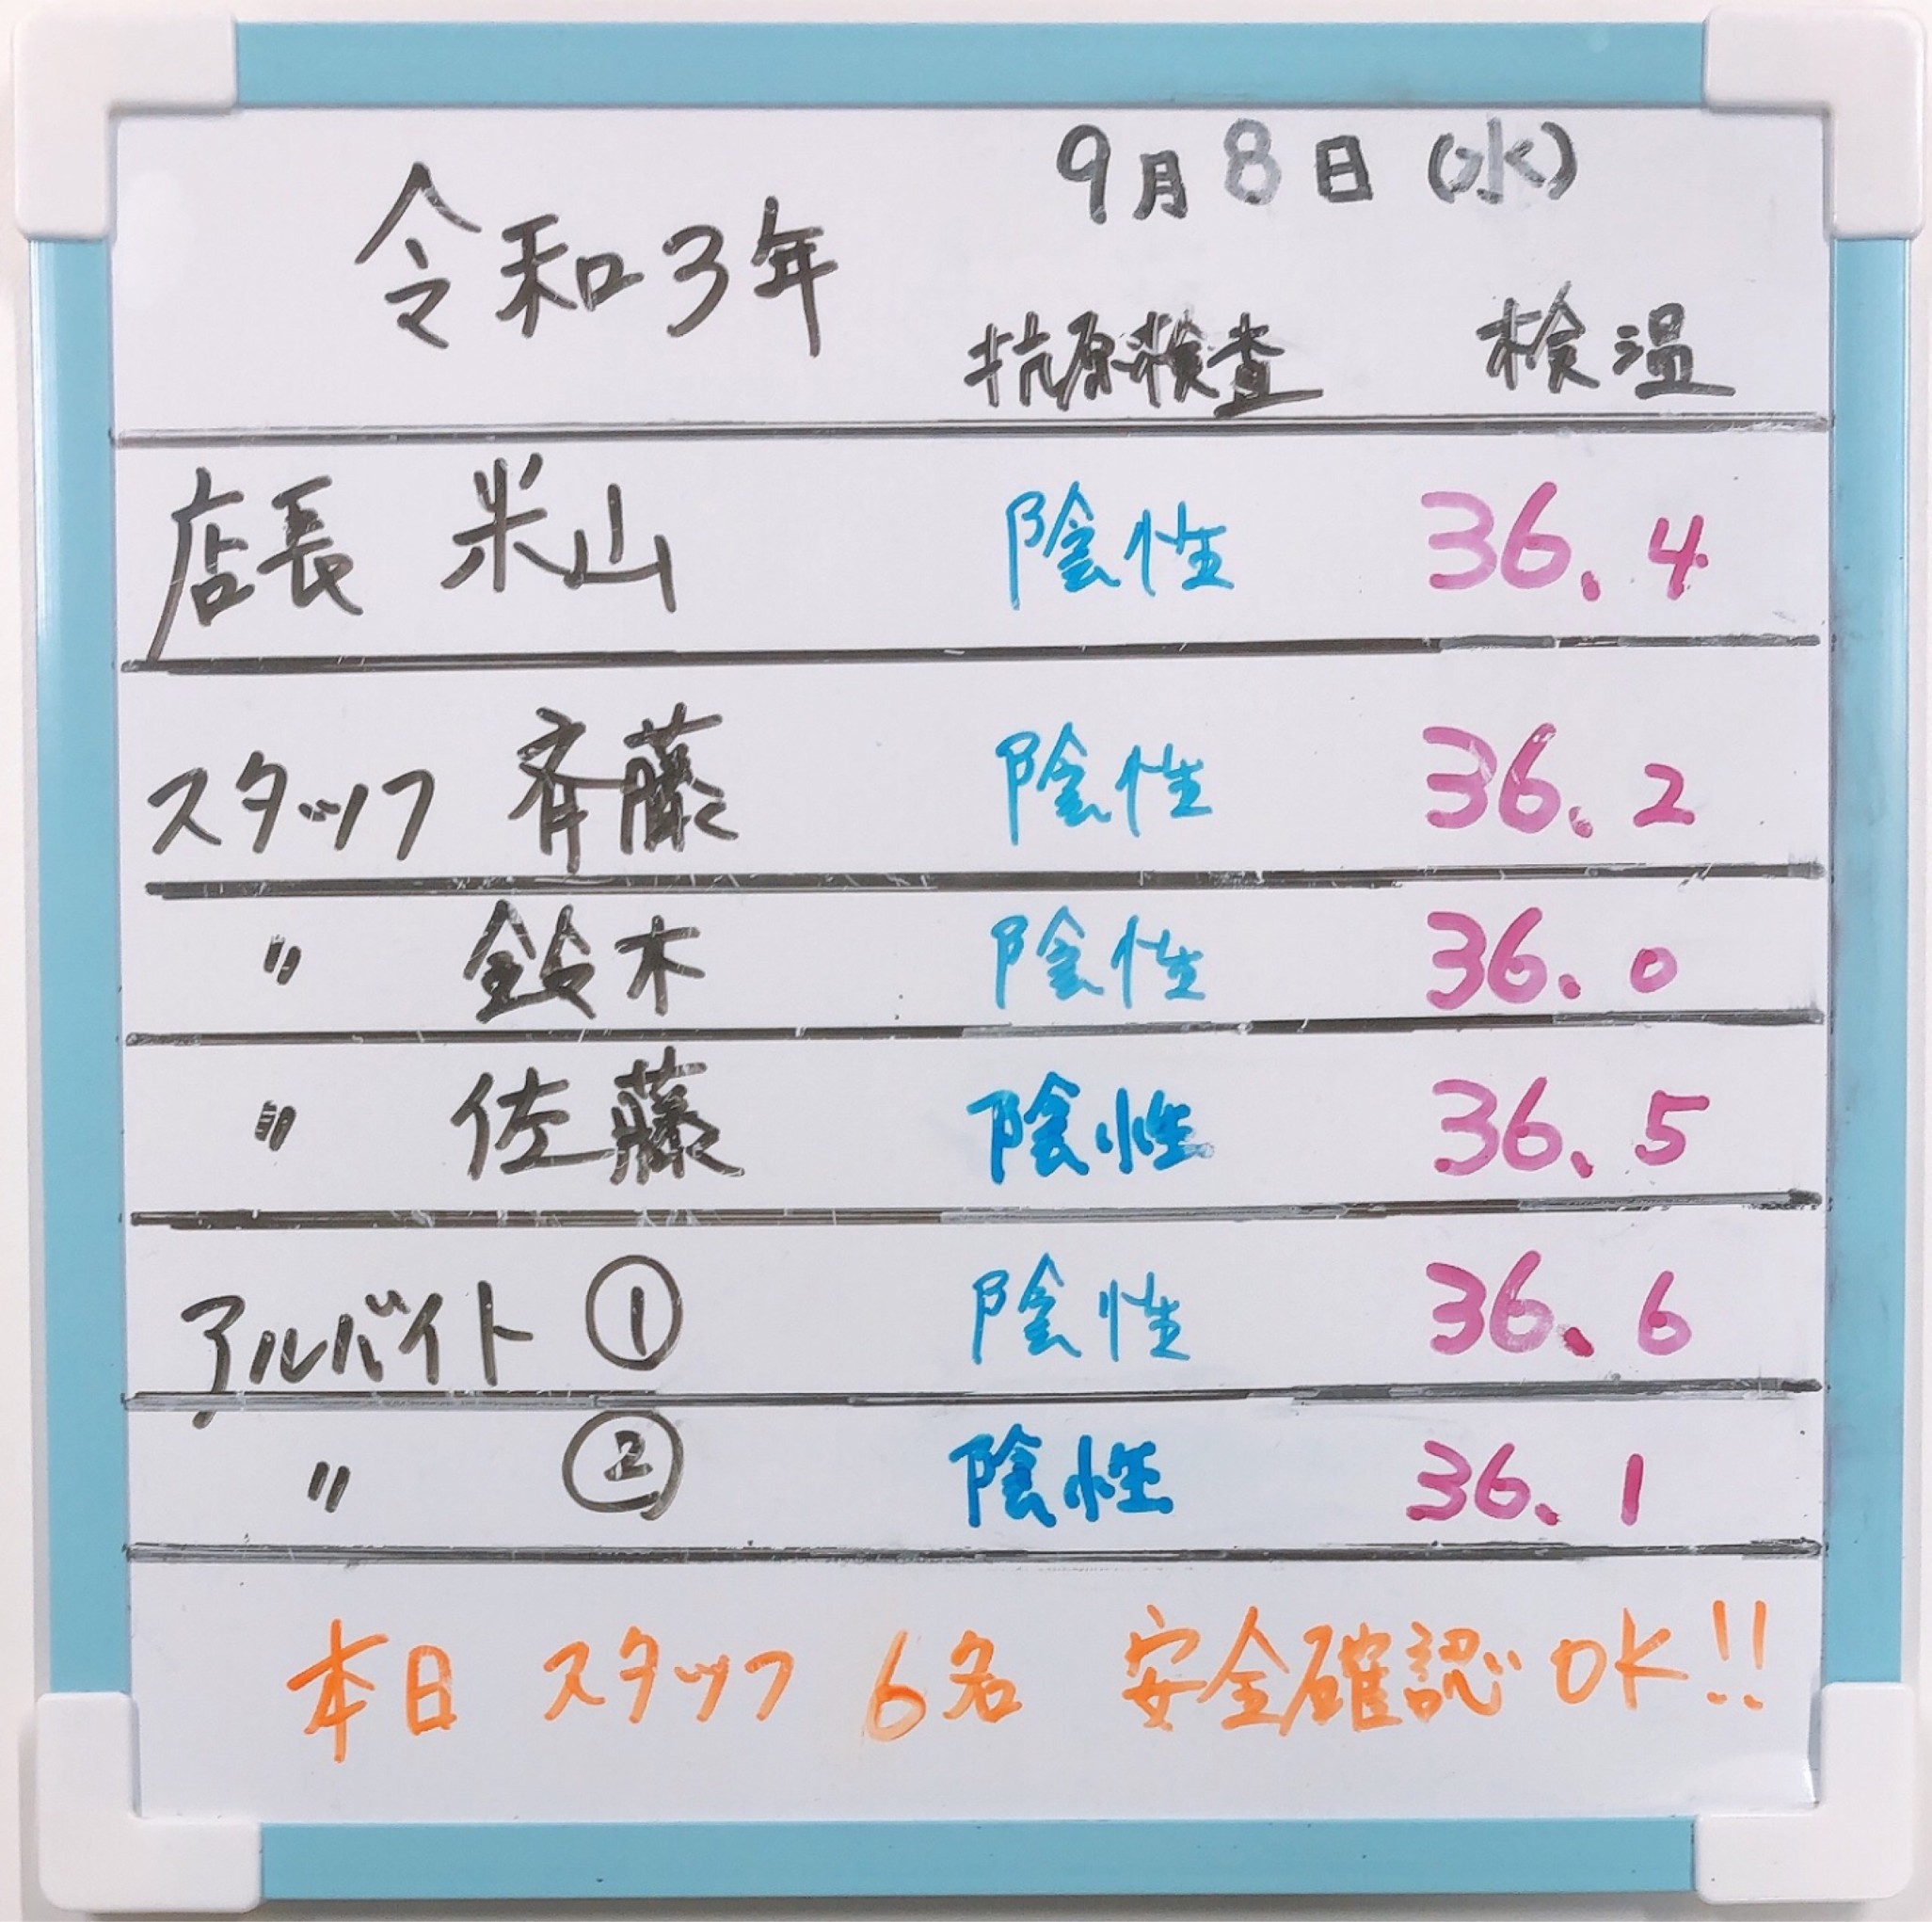 令和3年 9月8日(水)
抗原検査 検温
店長 米山 陰性 36.4
スタッフ 斉藤 陰性 36.2
〃 鈴木 陰性 36.0
〃 佐藤 陰性 36.5
アルバイト ① 陰性 36.6
〃 ② 陰性 36.1
本日 スタッフ 6名 安全確認OK!!